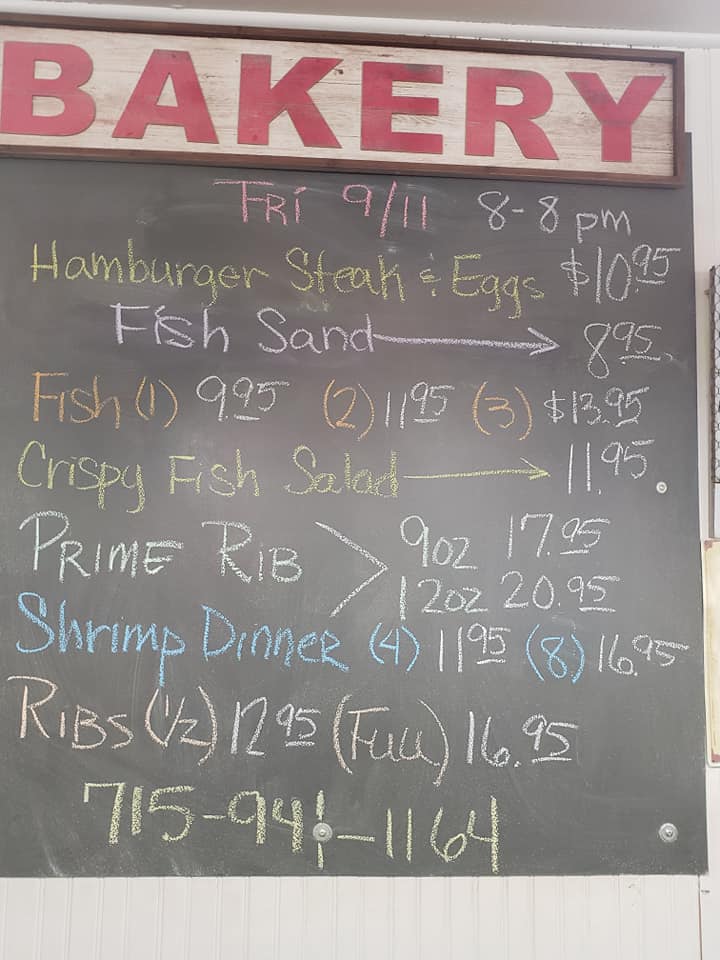 BAKERY
FRI 9/11 8-8pm
Hamburger Steak & Eggs $10.95
Fish Sand → 8.95
Fish (1) 9.95 (2) 11.95 (3) $13.95
Crispy Fish Salad → 11.95.
PRIME RIB > 9oz 17.95
12oz 20.95
Shrimp Dinner (4) 11.95 (8) 16.95
RIBS (1/2) 12.95 (Full) 16.95
715-941-1164